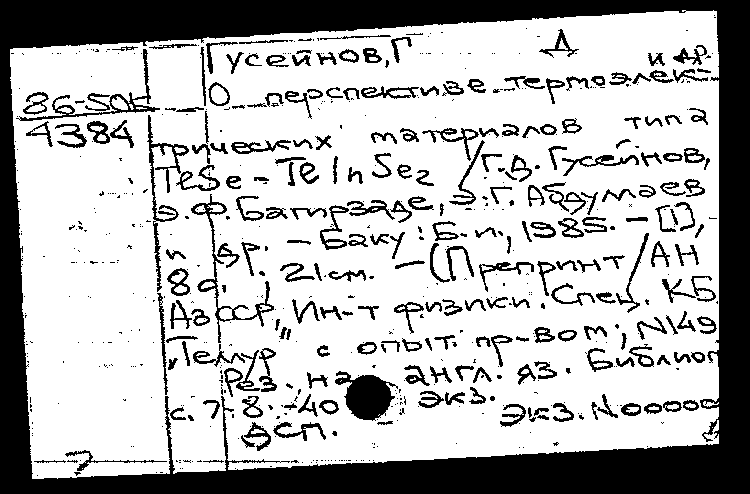 Гусейнов, Г Д и др.
86-50к О перспективе термоэлек-
4384 трических материалов типа
TeSe - TeInSe2 / Г.Д. Гусейнов,
Э.Ф. Багирзаде, Э.Г. Абдумаев
и др. - Баку: Б.и., 1985. - [1],
8 с. ; 21 см. - (Препринт / АН
АзССР, Ин-т физики. Спец. КБ
"Теллур" с опыт. пр-вом; N149
Рез. на англ. яз. Библиог
с. 7-8. - 40 экз. Экз. N 00000
ДСП.